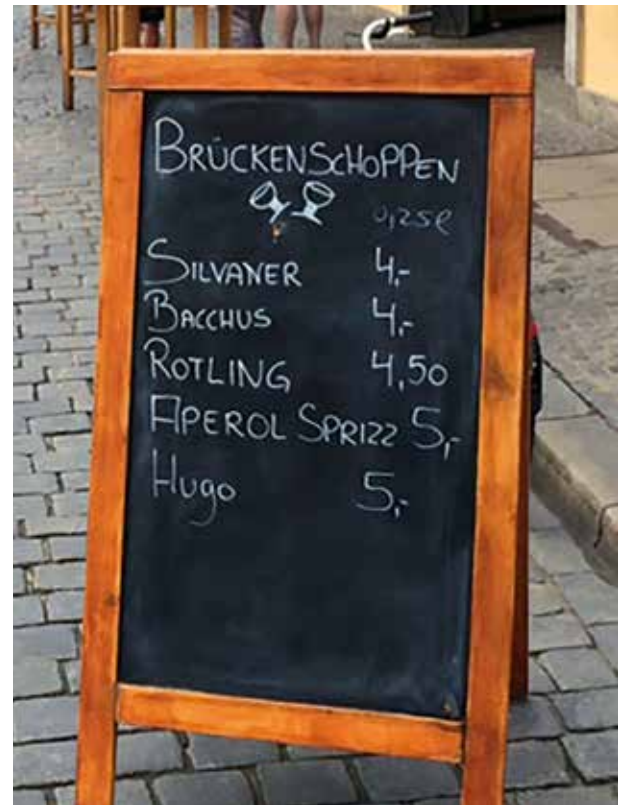 BRÜCKENSCHOPPEN
0,25l
SILVANER 4,-
BACCHUS 4,-
ROTLING 4,50
APEROL SPRIZZ 5,-
Hugo 5,-